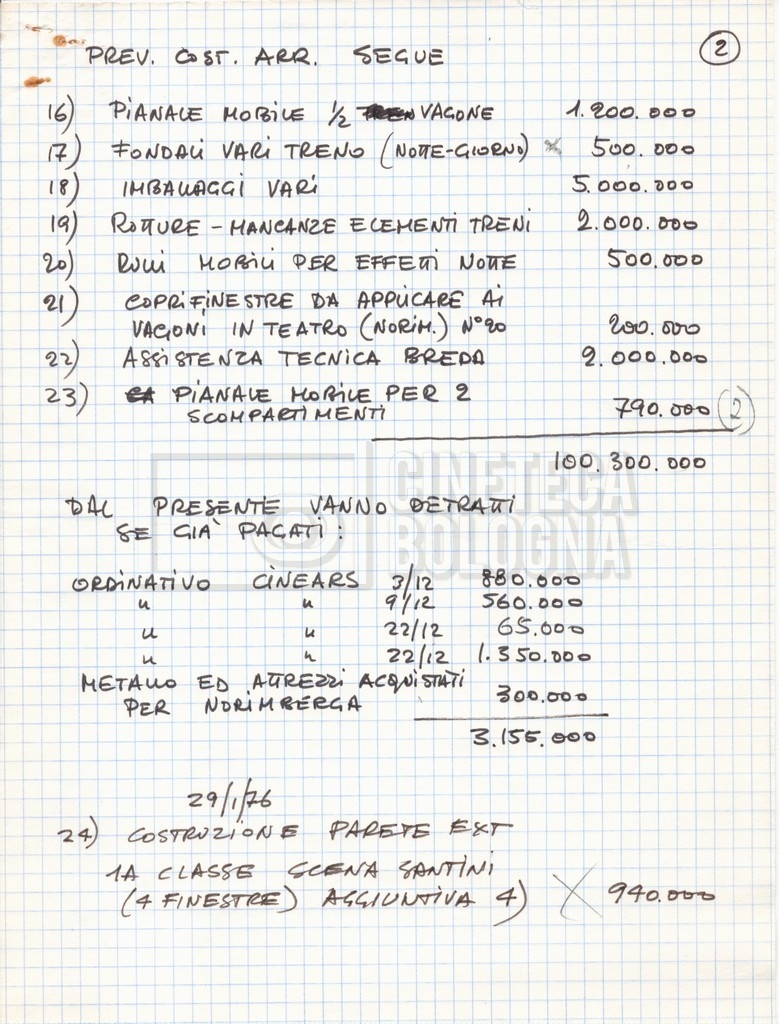 2
PREV. COST. ARR. SEGUE
16) PIANALE MOBILE 1/2 VAGONE 1.200.000
17) FONDALI VARI TRENO (NOTTE-GIORNO) x 500.000
18) IMBALLAGGI VARI 5.000.000
19) ROTTURE - MANCANZE ELEMENTI TRENI 2.000.000
20) RULLI MOBILI PER EFFETTI NOTTE 500.000
21) COPRIFINESTRE DA APPLICARE AI
VAGONI IN TEATRO (NORIM.) N°20 200.000
22) ASSISTENZA TECNICA BREDA 2.000.000
23) PIANALE MOBILE PER 2
SCOMPARTIMENTI 790.000 (2)
100.300.000
CINETECA
BOLOGNA
DAL PRESENTE VANNO DETRATTI
SE GIÀ PAGATI:
ORDINATIVO CINEARS 3/12 880.000
" " 9/12 560.000
" " 22/12 65.000
" " 22/12 1.350.000
METALLO ED ATTREZZI ACQUISTATI
PER NORIMBERGA 300.000
3.155.000
29/1/76
24) COSTRUZIONE PARETE EXT
1A CLASSE SCENA SANTINI
(4 FINESTRE) AGGIUNTIVA 4) X 940.000